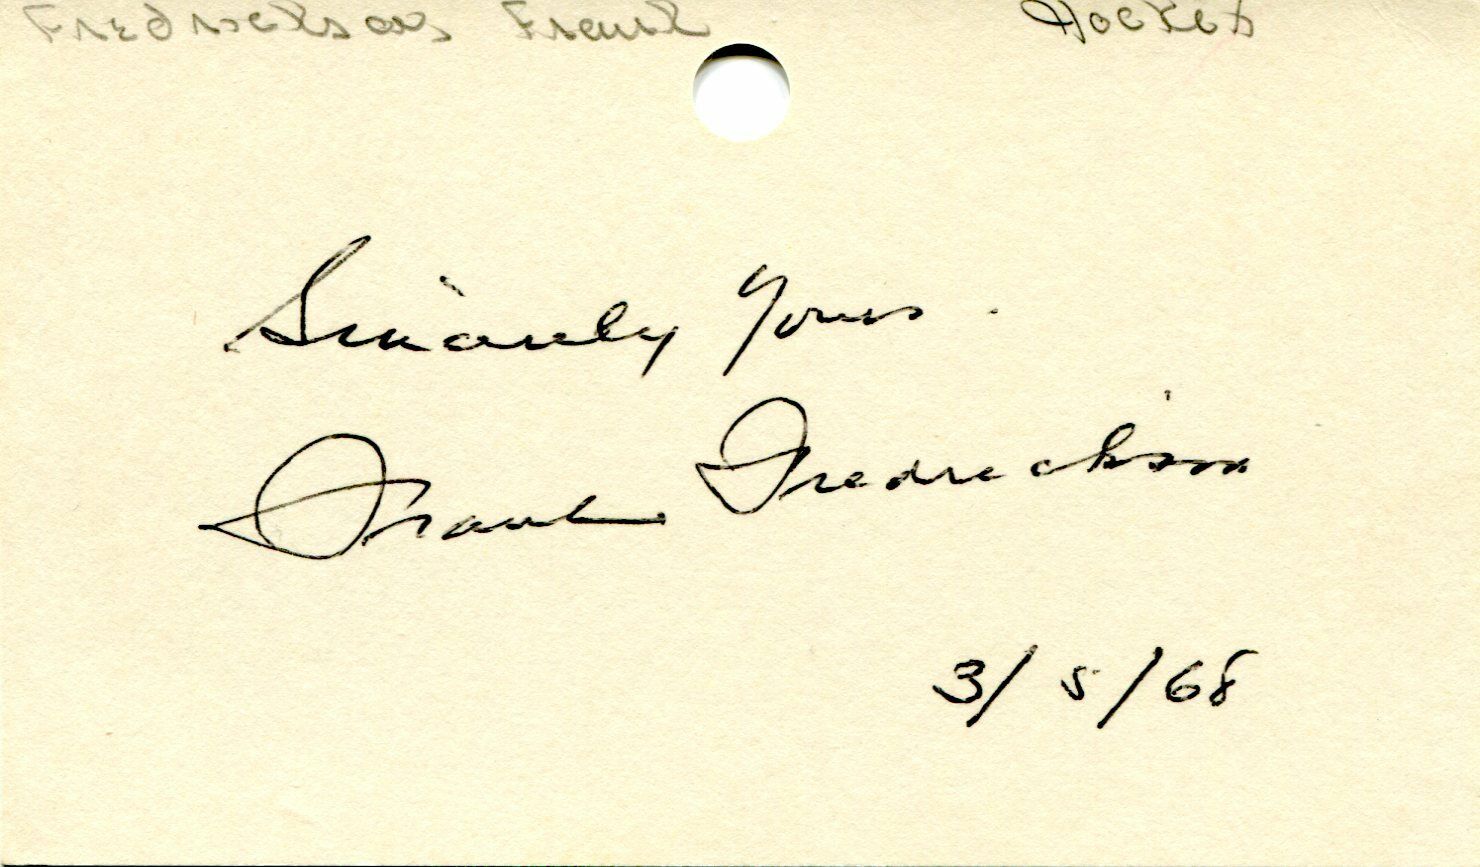 Fredrickson Frank Hockey
Sincerely Yours.
Frank Fredrickson
3/5/68